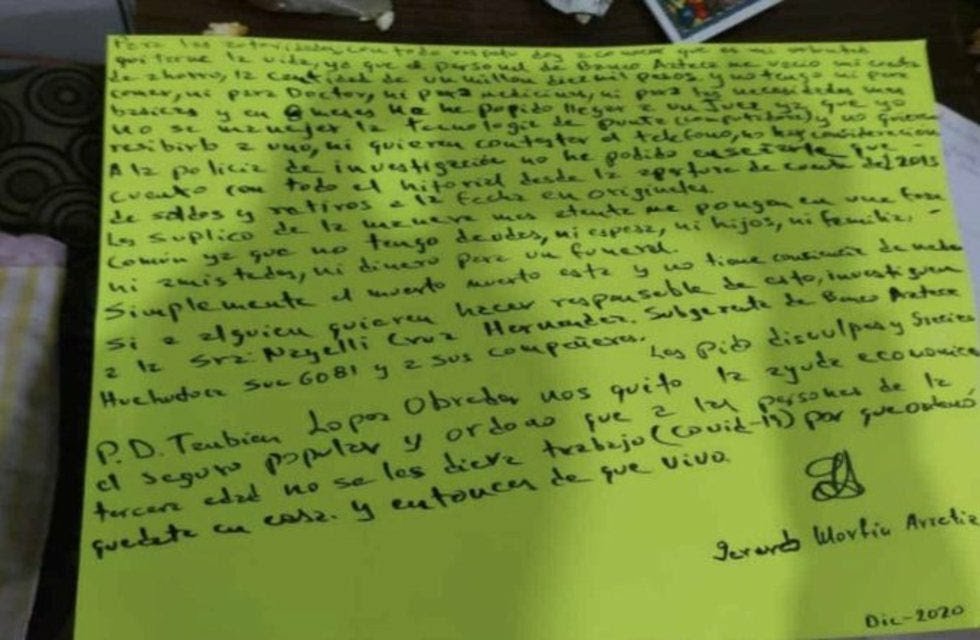 Para las autoridades, con todo respeto doy a conocer que es mi voluntad
quitarme la vida, ya que el personal de Banco Azteca me vacio mi cuenta
de ahorro, la cantidad de un millon diezmil pesos y no tengo ni para
comer, ni para Doctor, ni para medicinas, ni para las necesidades mas
basicas y en 8 meses no he podido llegar a un Juez ya que yo
no se manejar la tecnologia de punta (computadora) y no quieren
recibirlo a uno, ni quieren contestar el telefono, no hay consideracion
A la policia de investigación no he podido enseñarle que -
cuento con todo el hitorial desde la apertura de cuenta del 2013
de saldos y retiros a la fecha en originales.
Les suplico de la manera mas atenta me pongan en una fosa
común ya que no tengo deudos, ni esposa, ni hijos, ni familia, -
ni amistades, ni dinero para un funeral.
Simplemente el muerto muerto esta y no tiene conciencia de nada
Si a alguien quieren hacer responsable de esto, investiguen
a la Sra: Nayelli Cruz Hernandez. Subgerente de Banco Azteca
Huehuetoca Suc 6081 y a sus compañeros.
Les Pido disculpas y Gracias
P.D. Tanbien Lopez Obrador nos quito la ayuda economica
el seguro popular y ordeno que a las personas de la
tercera edad no se les diera trabajo (Covid-19) por que ordenó
quedate en casa. y entonces de que vivo.
Gerardo Martin Arretia
Dic-2020